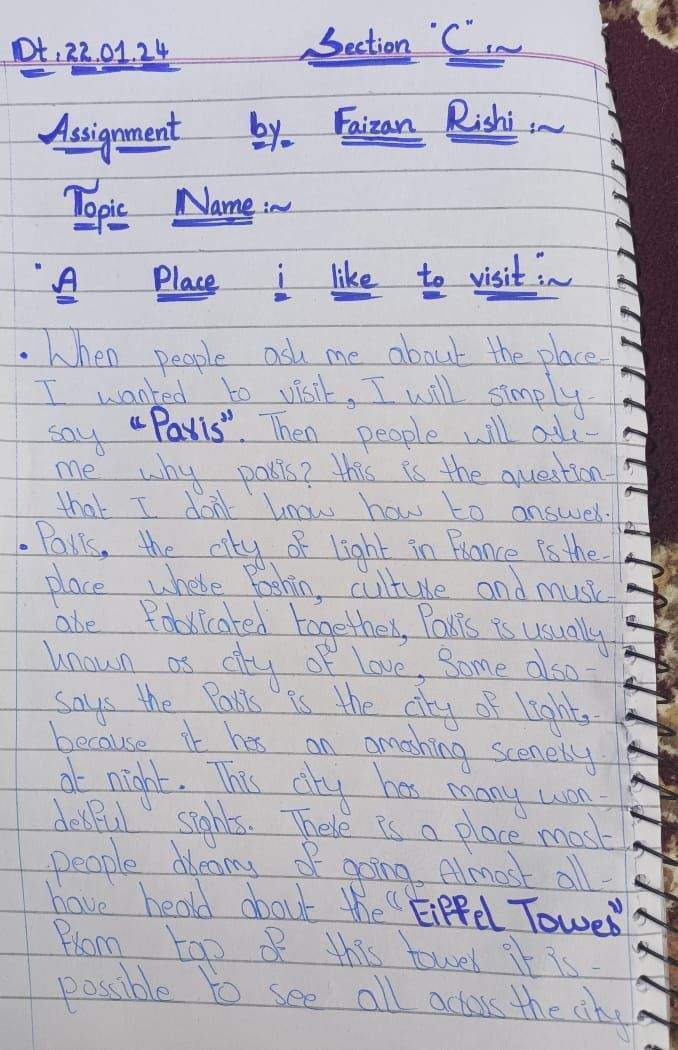 Dt. 22.01.24 Section "C" :~
Assignment by Faizan Rishi :~
Topic Name :~
"A Place i like to visit" :~
• When people ask me about the place-
I wanted to visit, I will simply-
say "Paris". Then people will ask-
me why paris? this is the question-
that I don't know how to answer.
• Paris, the city of light in France is the-
place where Foshin, culture and music-
are Fabricated together, Paris is usually
known as city of love, Some also-
says the Paris is the city of lights,-
because it has an amoshing scenery.
at night. This city has many won-
derful sights. There is a place most
people dreams of going. Almost all-
have heard about the "Eiffel Tower"
From top of this tower it is-
possible to see all across the city